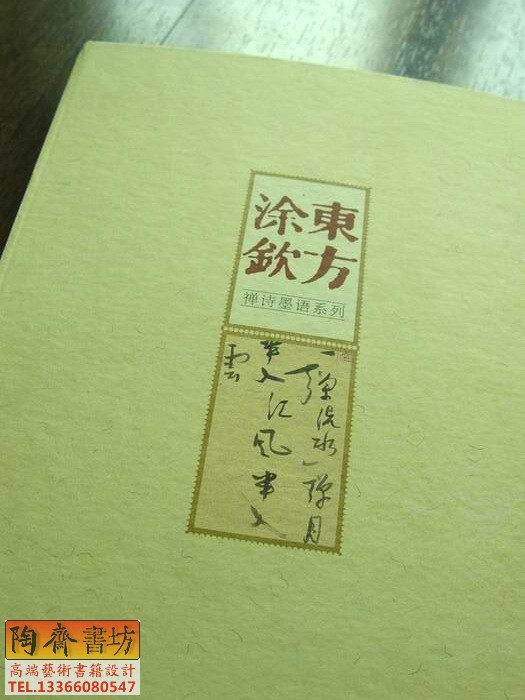 東方
涂欽
禅诗墨语系列
一彈流水一彈月
半入江风半入
雲
陶齋書坊
高端藝術書籍設計
TEL.13366080547